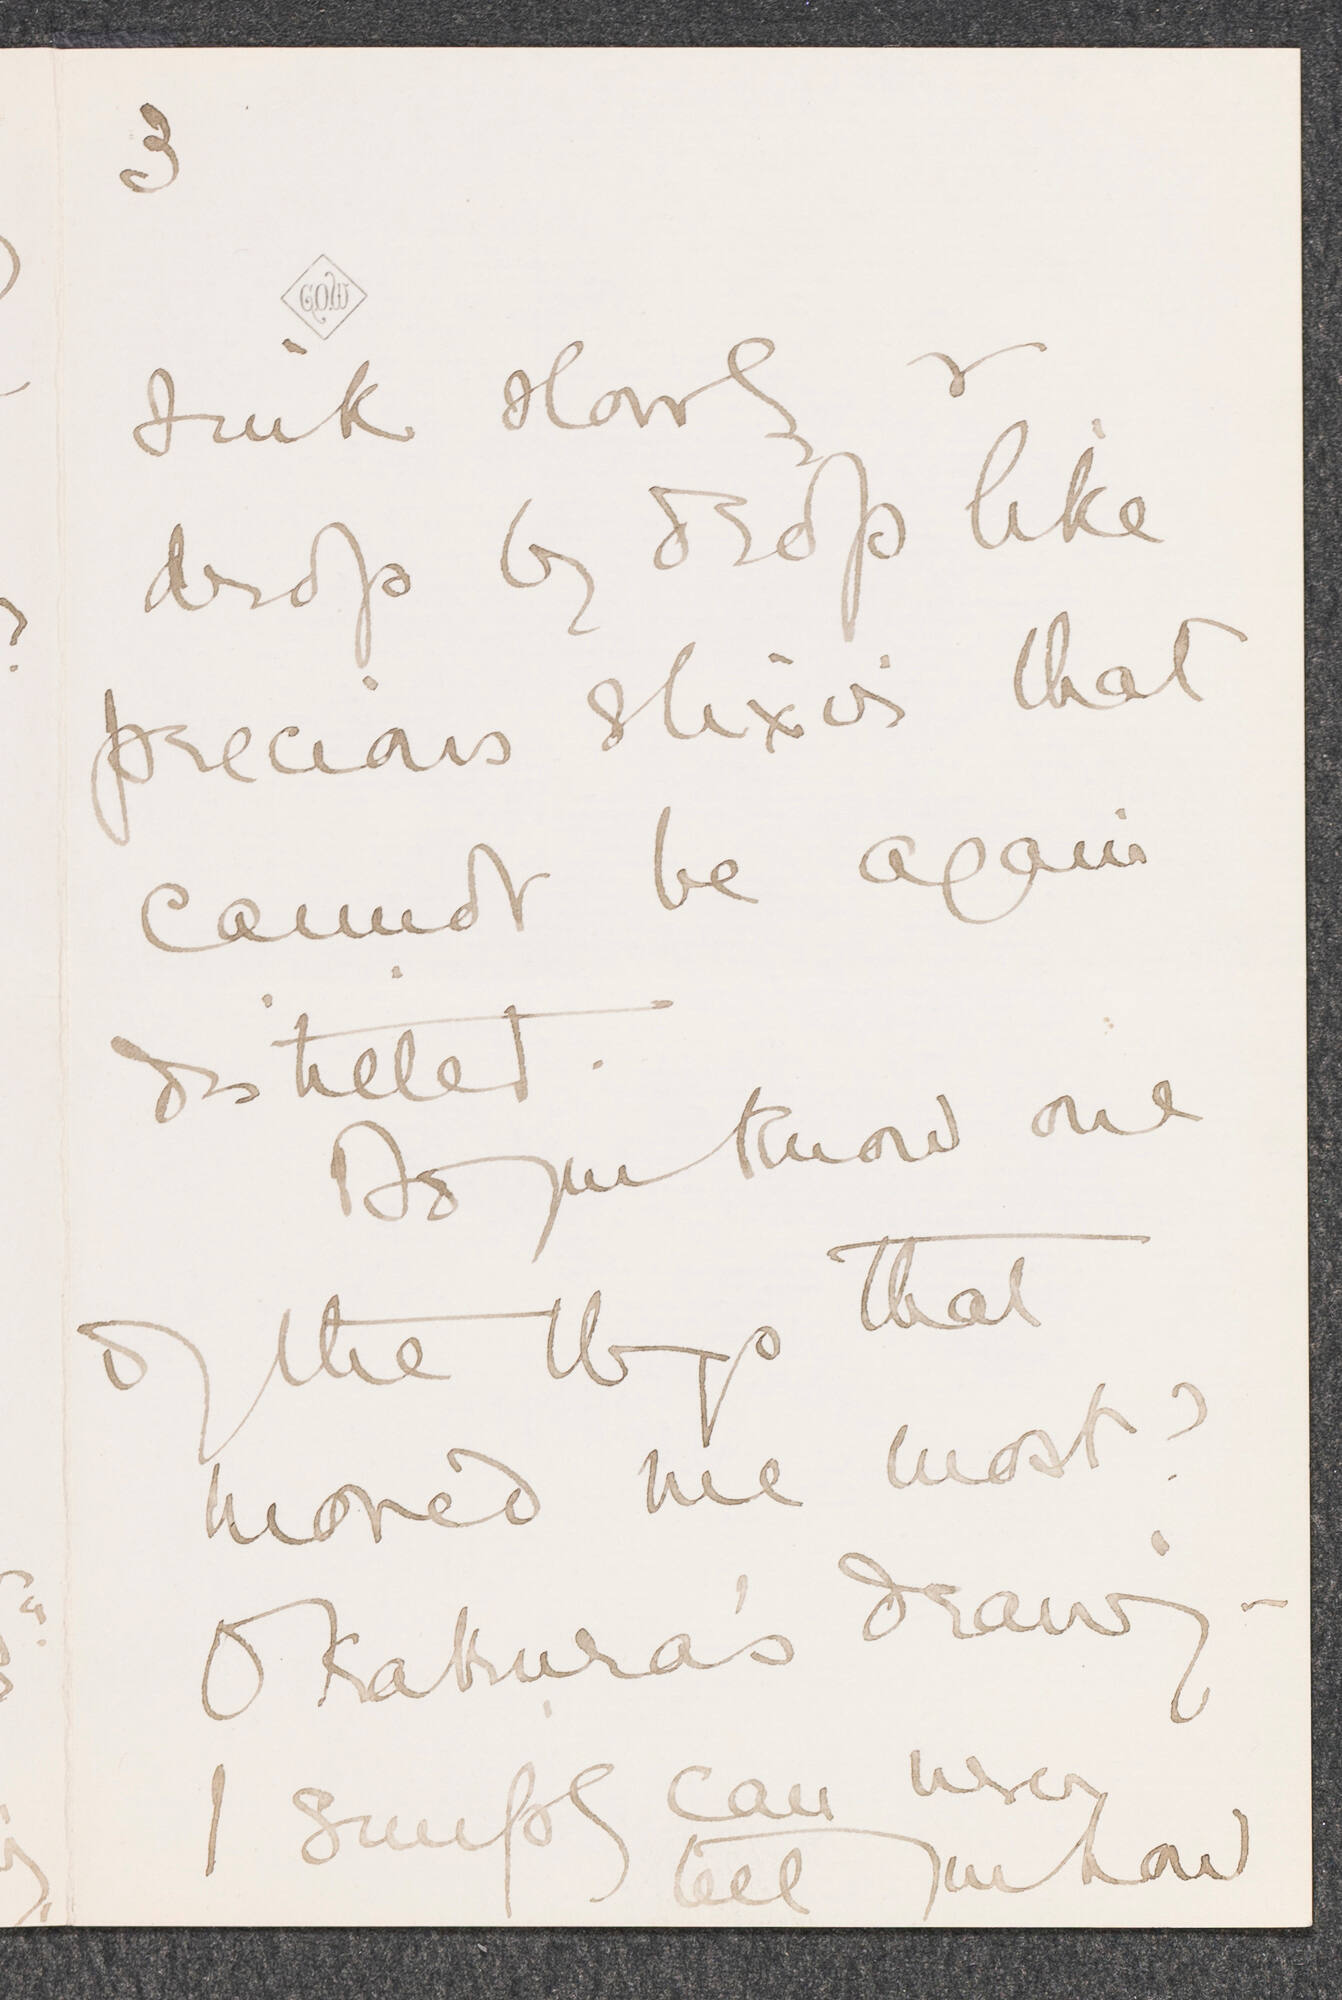 3
drink slowly &
drop by drop like
precious elixir that
cannot be again
distilled.
Do you know one
of the things that
moved me most?
Okakura's drawing -
I simply can never
tell you how